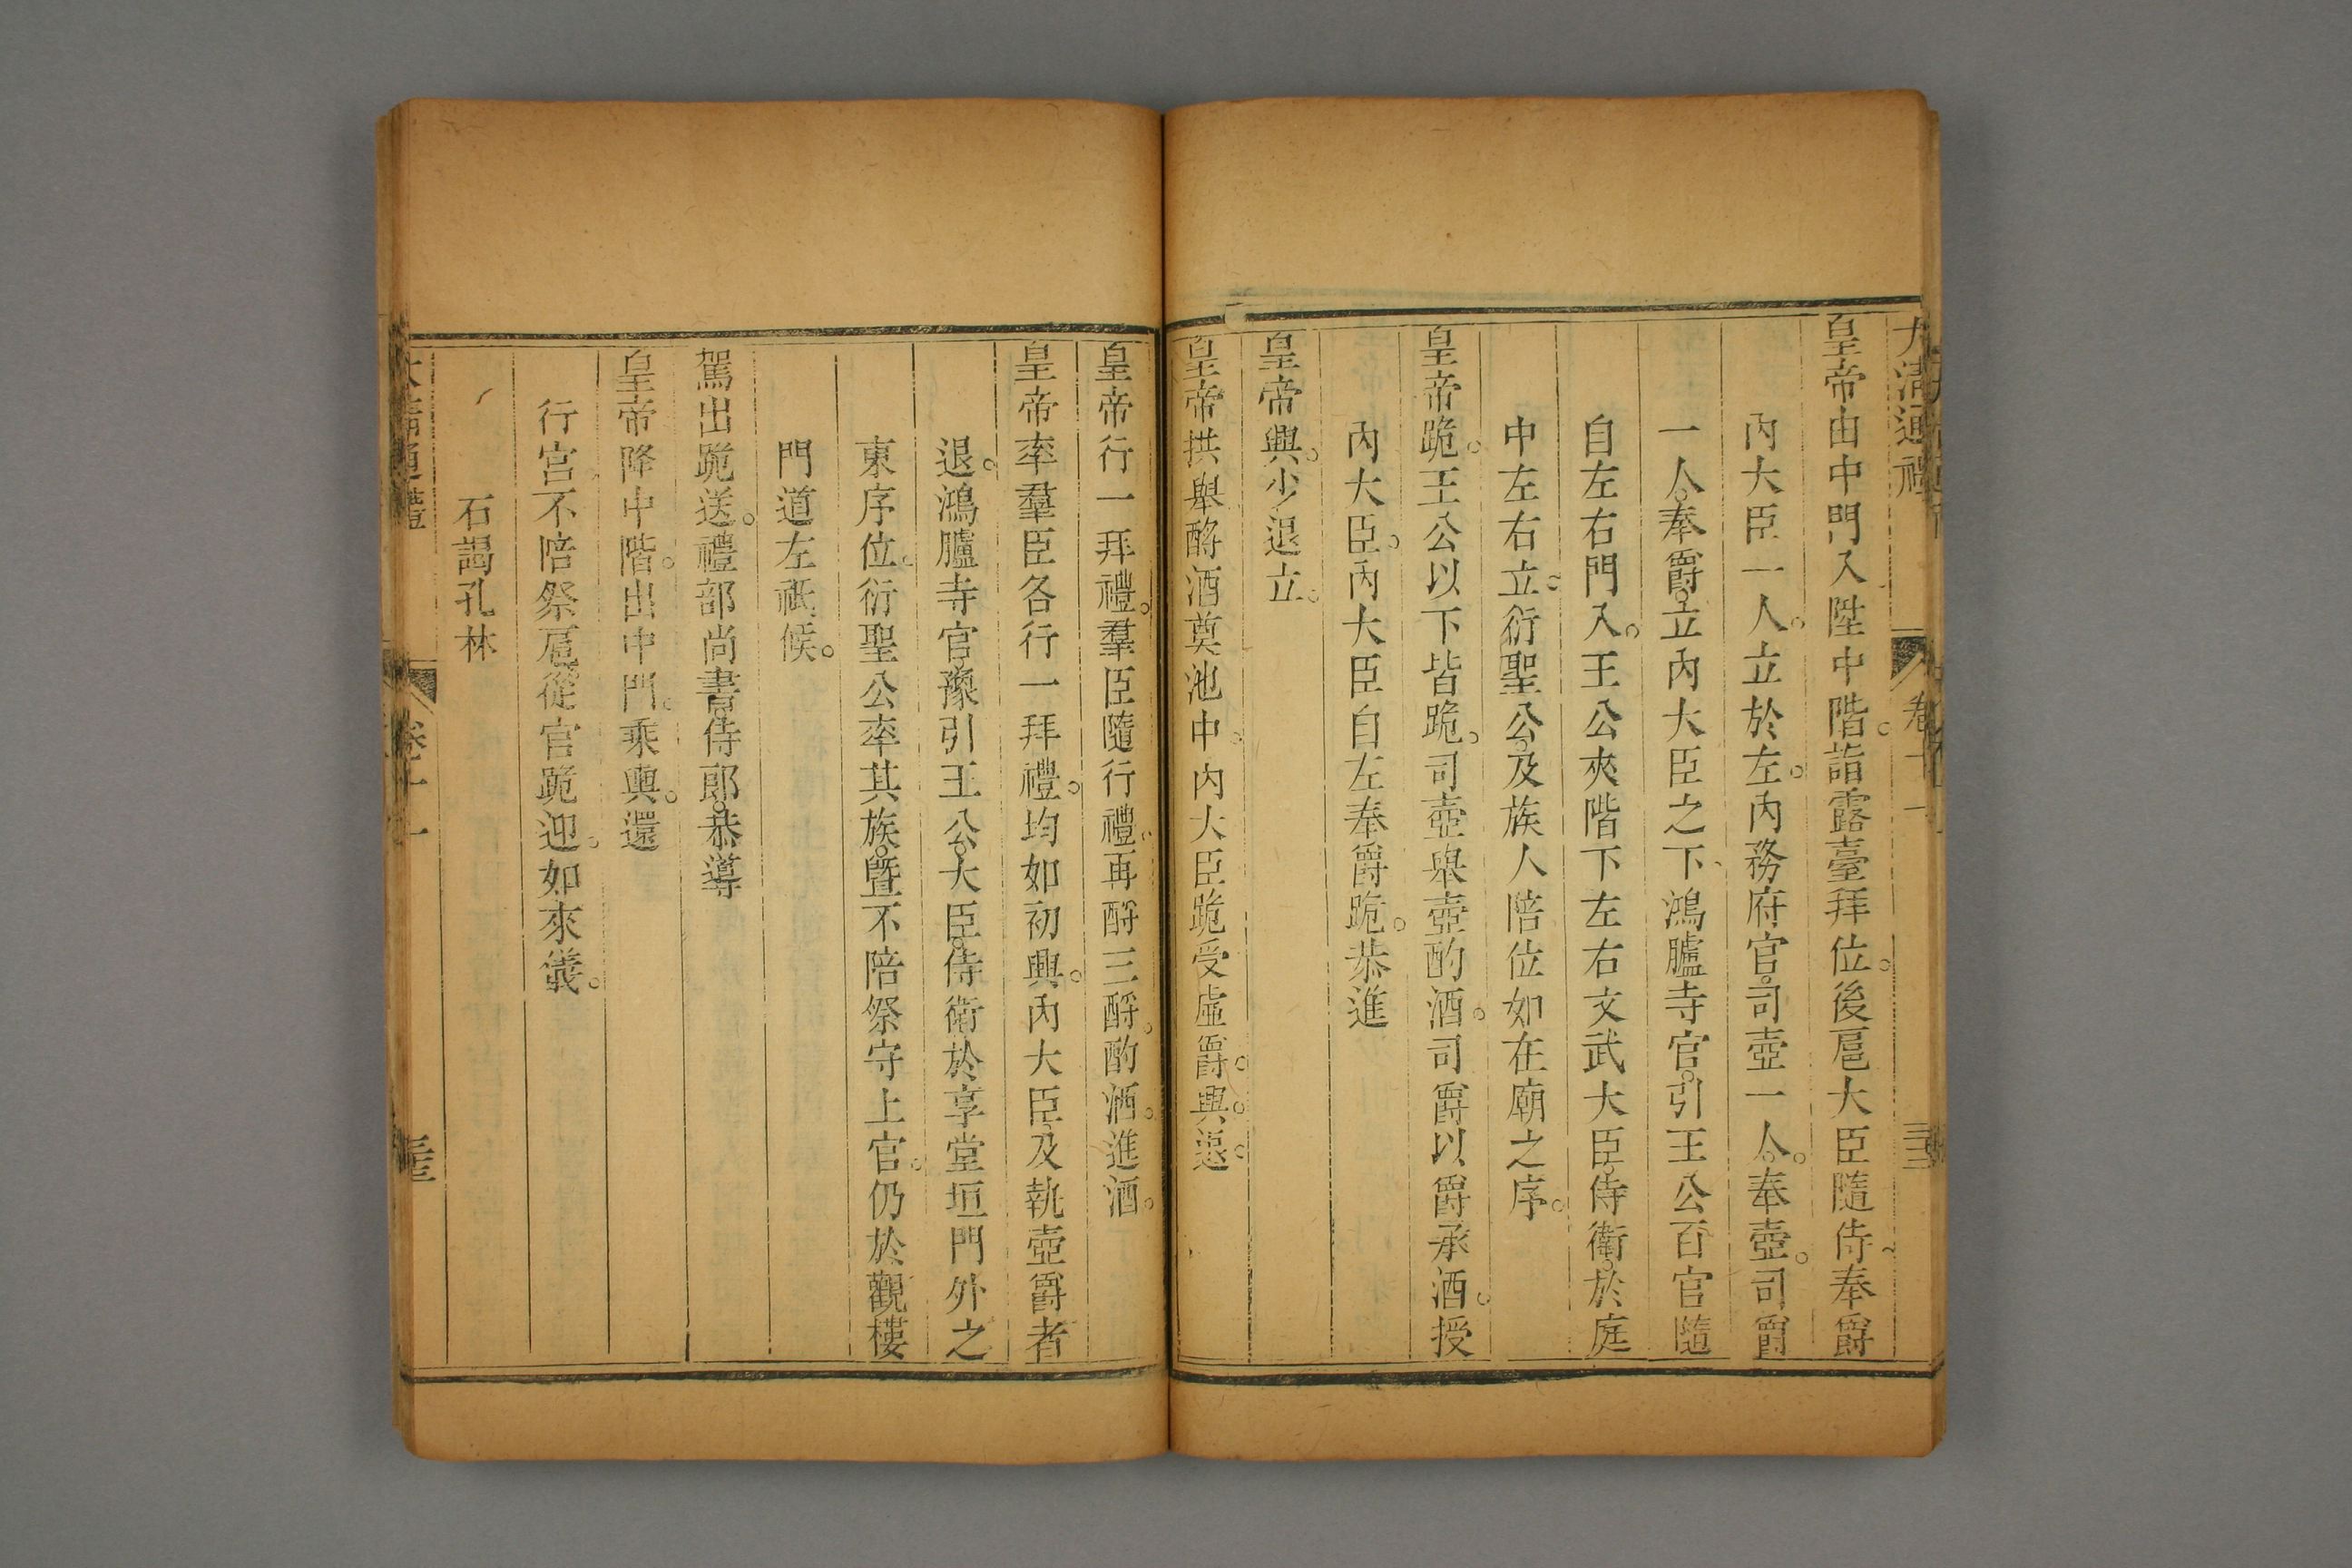 大清通禮 卷十一
皇帝由中門入陞中階。詣露臺拜位。後扈大臣隨侍。奉爵
內大臣一人。立於左。內務府官。司壺一人。奉壺。司爵
一人。奉爵。立內大臣之下、鴻臚寺官。引王公百官隨
自左右門入。王公夾階下左右文武大臣。侍衛。於庭
中左右立。衍聖公。及族人陪位如在廟之序。
皇帝跪。王公以下皆跪。司壺舉壺酌酒。司爵以爵承酒。授
內大臣。內大臣自左奉爵跪。恭進
皇帝興。少退立。
皇帝拱舉酹酒奠池中。內大臣跪受虛爵。興。退。
皇帝行一拜禮。羣臣隨行禮。再酹三酹。酌酒。進酒。
皇帝率羣臣各行一拜禮。均如初興。內大臣、及執壺爵者
退。鴻臚寺官豫引王公。大臣。侍衛於享堂垣門外之
東序位。衍聖公率其族。暨不陪祭守土官。仍於觀樓
門道左祗候。
駕出跪送。禮部尚書。侍郎。恭導
皇帝降中階。出中門。乘輿。還
行宮不陪祭扈從官跪迎。如來儀。
石謁孔林
大清通禮 卷十一